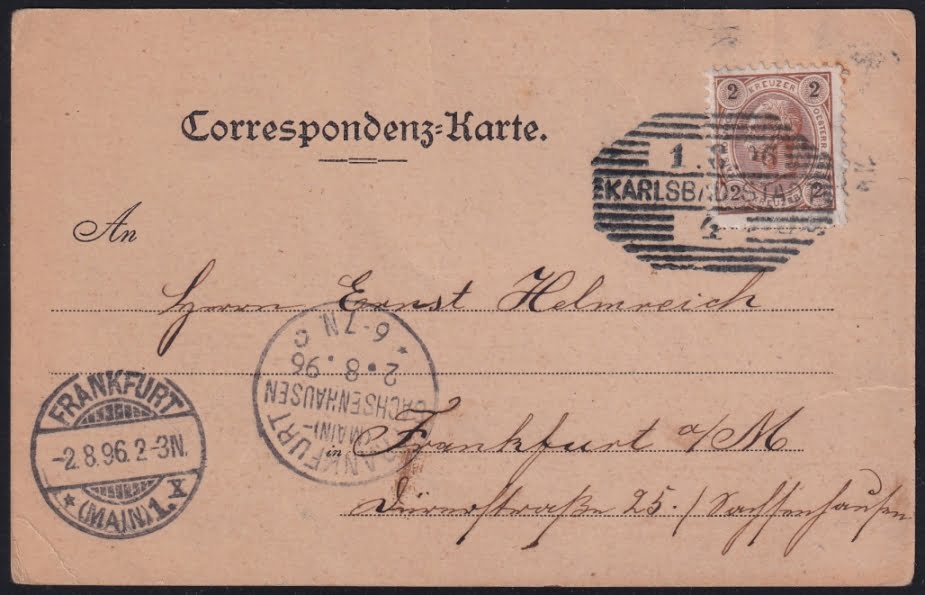 Correspondenz-Karte.
2 KREUZER 2
2 2
1. 8. 96
KARLSBAD STADT
4
An
Herrn Ernst Helmreich
in Frankfurt a/M
Dürerstraße 25. / Sachsenhausen
FRANKFURT
-2.8.96. 2-3N.
* (MAIN) 1. X
FRANKFURT
(MAIN)-
SACHSENHAUSEN
2.8.96
* 6-7 N C